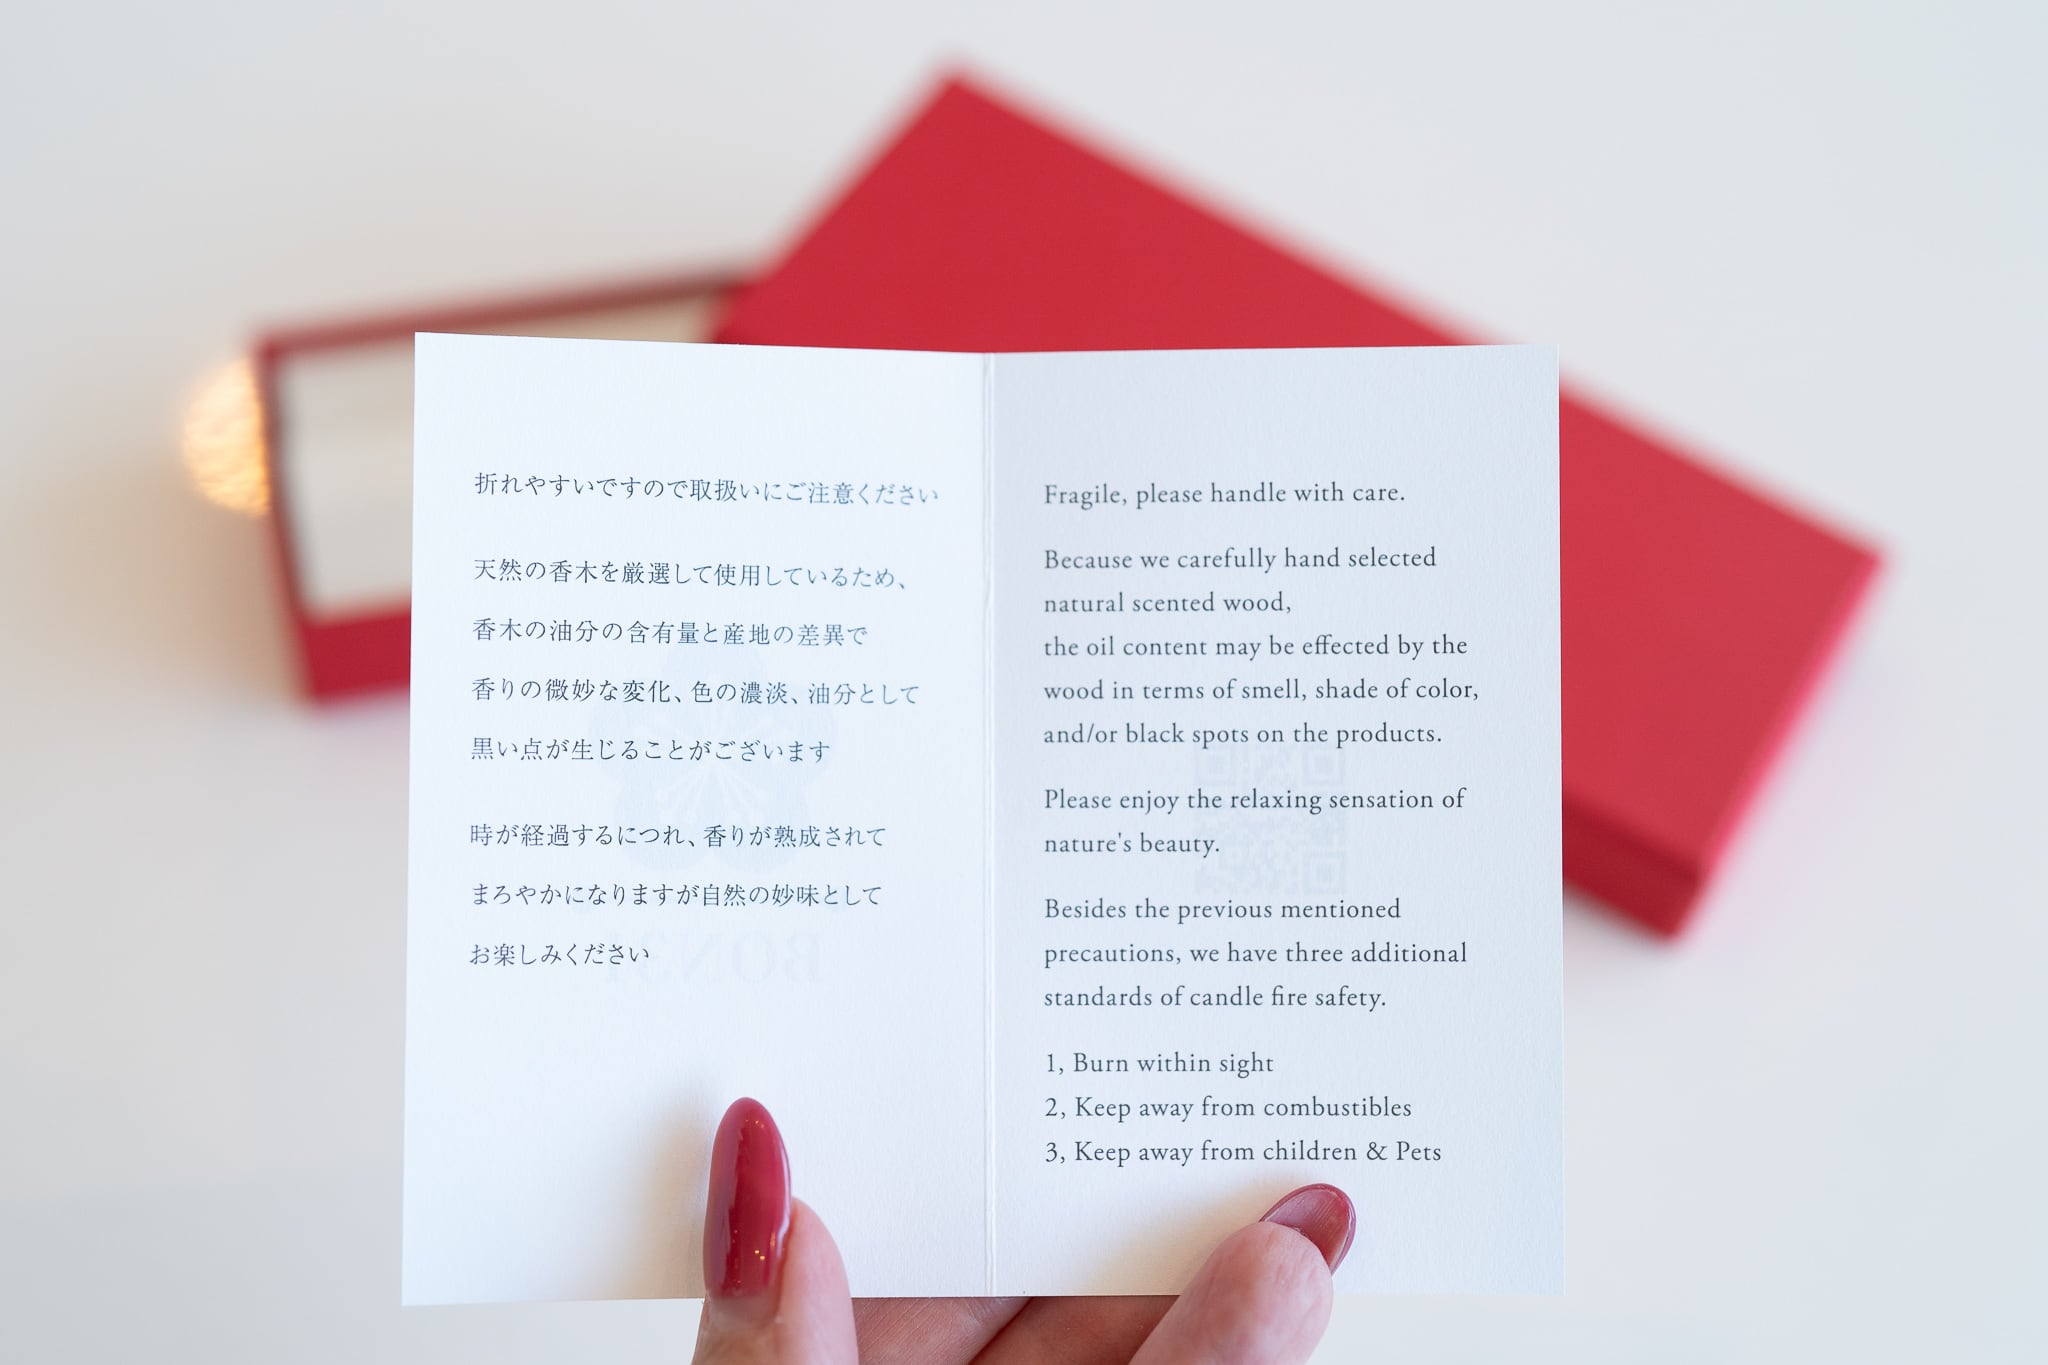 折れやすいですので取扱いにご注意ください
天然の香木を厳選して使用しているため、
香木の油分の含有量と産地の差異で
香りの微妙な変化、色の濃淡、油分として
黒い点が生じることがございます
時が経過するにつれ、香りが熟成されて
まろやかになりますが自然の妙味として
お楽しみください
Fragile, please handle with care.
Because we carefully hand selected
natural scented wood,
the oil content may be effected by the
wood in terms of smell, shade of color,
and/or black spots on the products.
Please enjoy the relaxing sensation of
nature's beauty.
Besides the previous mentioned
precautions, we have three additional
standards of candle fire safety.
1, Burn within sight
2, Keep away from combustibles
3, Keep away from children & Pets